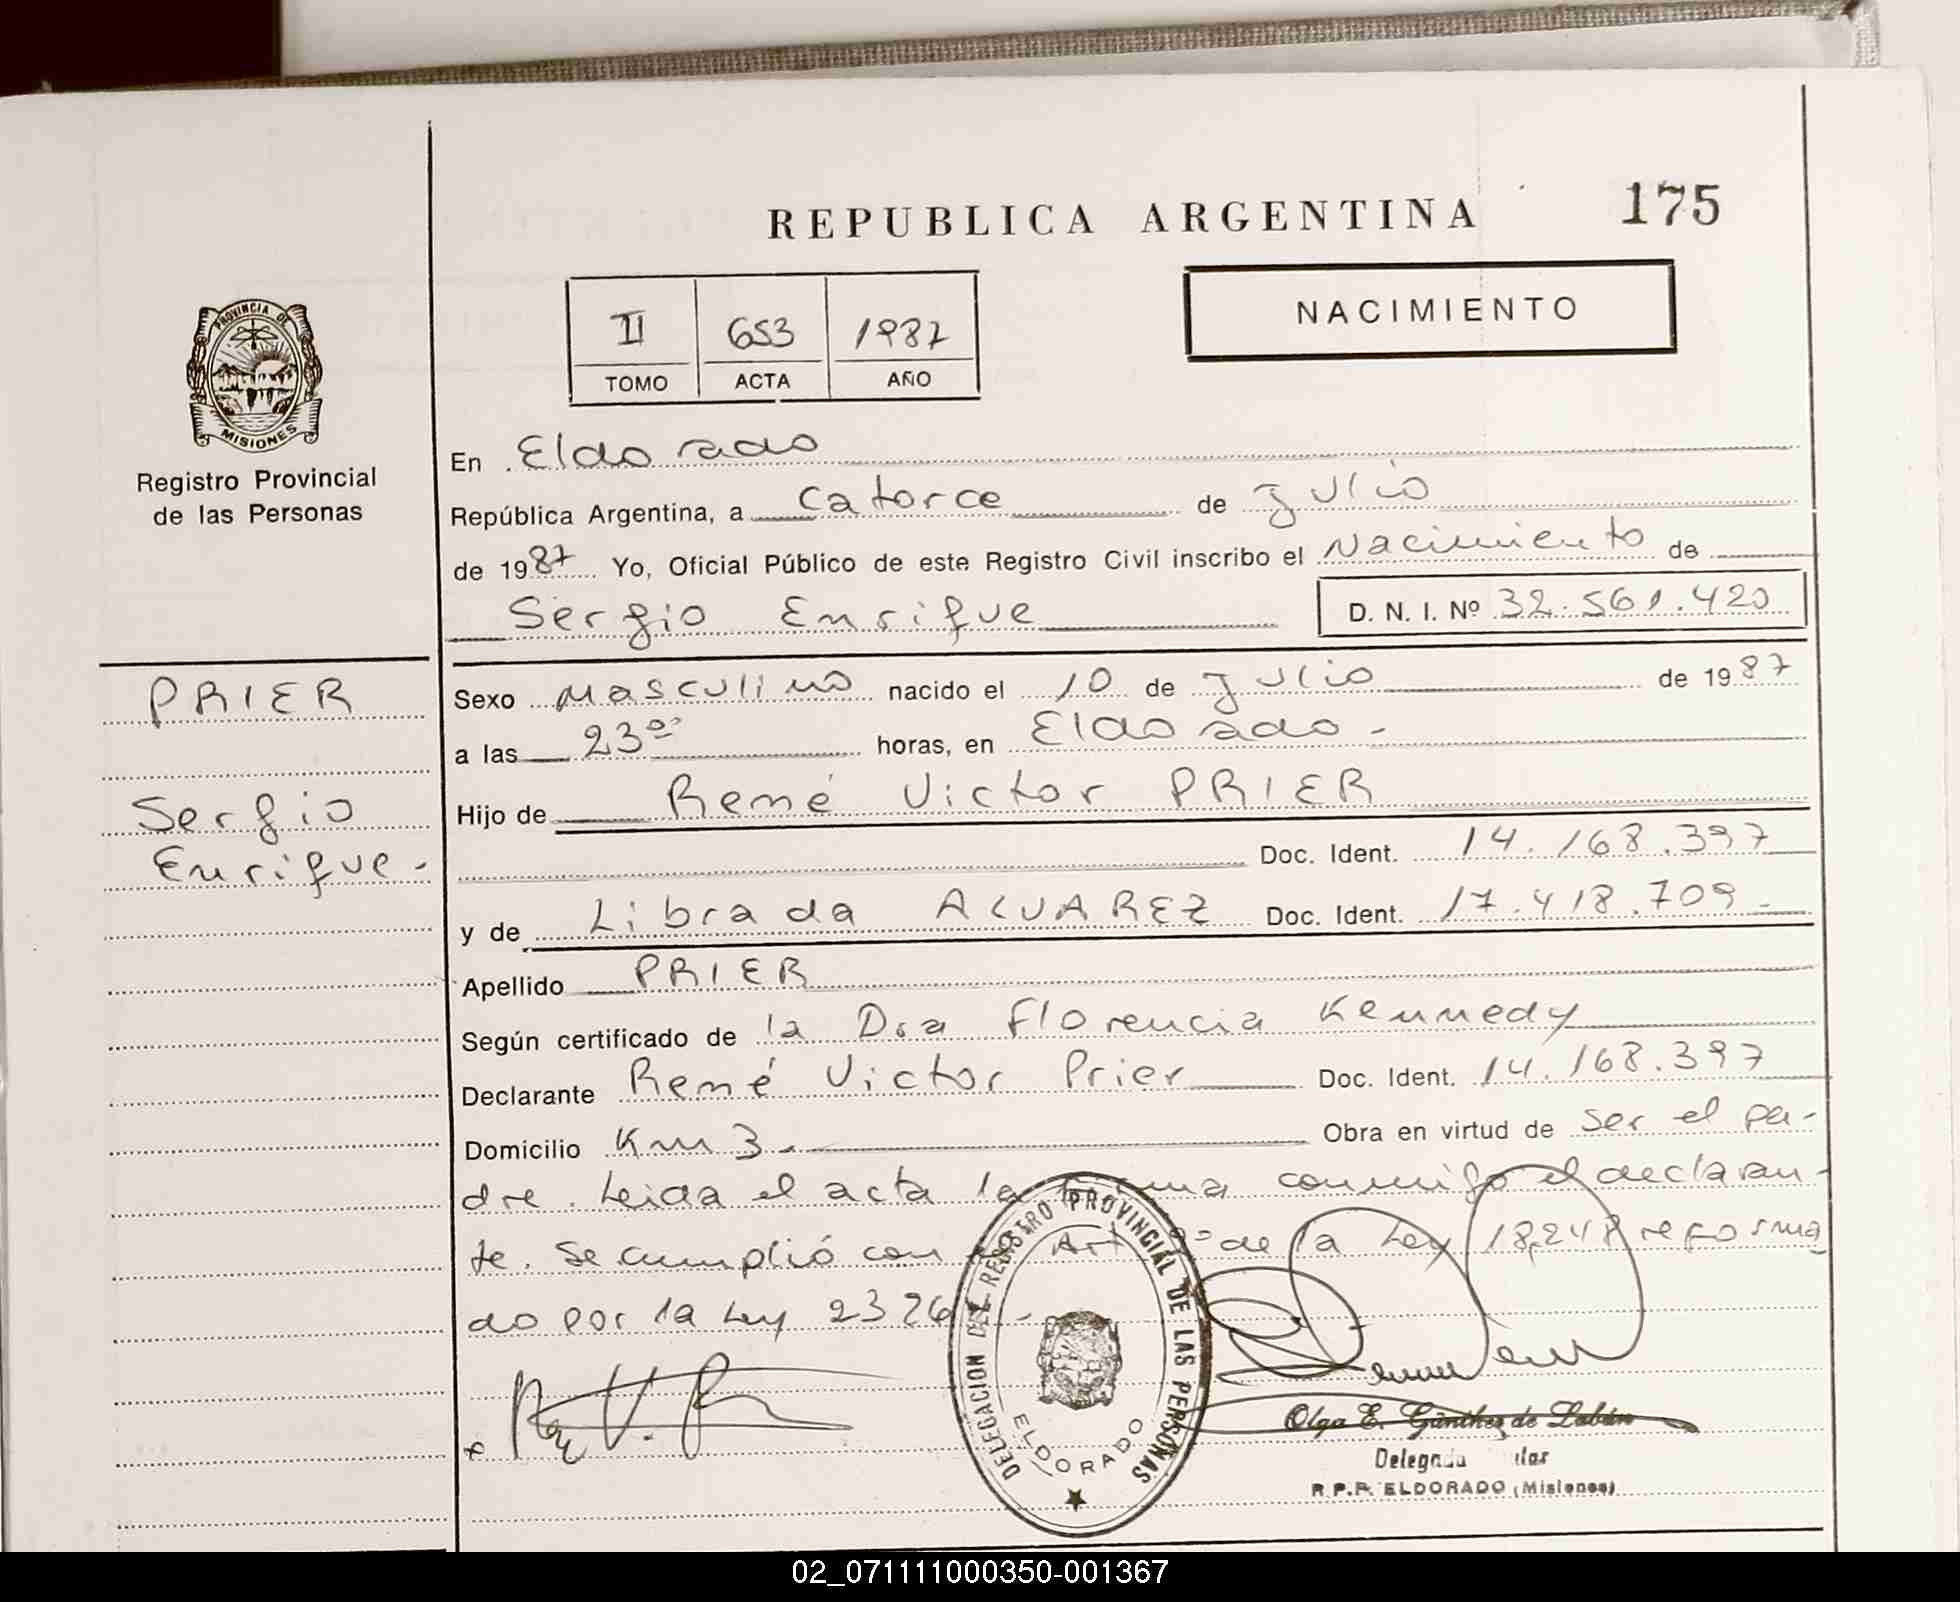 REPUBLICA ARGENTINA
175
II 653 1987
TOMO ACTA AÑO
NACIMIENTO
PROVINCIA DE MISIONES
Registro Provincial
de las Personas
En Eldorado
República Argentina, a Catorce de Julio
de 1987 Yo, Oficial Público de este Registro Civil inscribo el Nacimiento de
Sergio Enrique D. N. I. Nº 32.561.420
PRIER
Sergio
Enrique.-
Sexo Masculino nacido el 10 de Julio de 1987
a las 23 horas, en Eldorado.-
Hijo de René Victor PRIER
Doc. Ident. 14.168.397
y de Librada ALVAREZ Doc. Ident. 17.418.709.-
Apellido PRIER
Según certificado de la Dra Florencia Kennedy
Declarante René Victor Prier Doc. Ident. 14.168.397
Domicilio Km 3.- Obra en virtud de ser el pa-
dre. Leida el acta la firma conmigo el declaran-
te. Se cumplió con Art de la Ley 18.248 reforma
do por la Ley 2326
DELEGACION DEL REGISTRO PROVINCIAL DE LAS PERSONAS
ELDORADO
Olga E. Günther de Labán
Delegada
R.P.P. ELDORADO (Misiones)
02_071111000350-001367